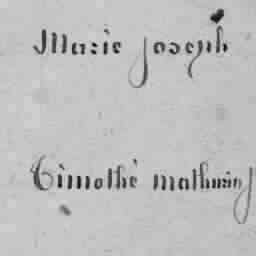 Marie joseph
Timothé mathurin